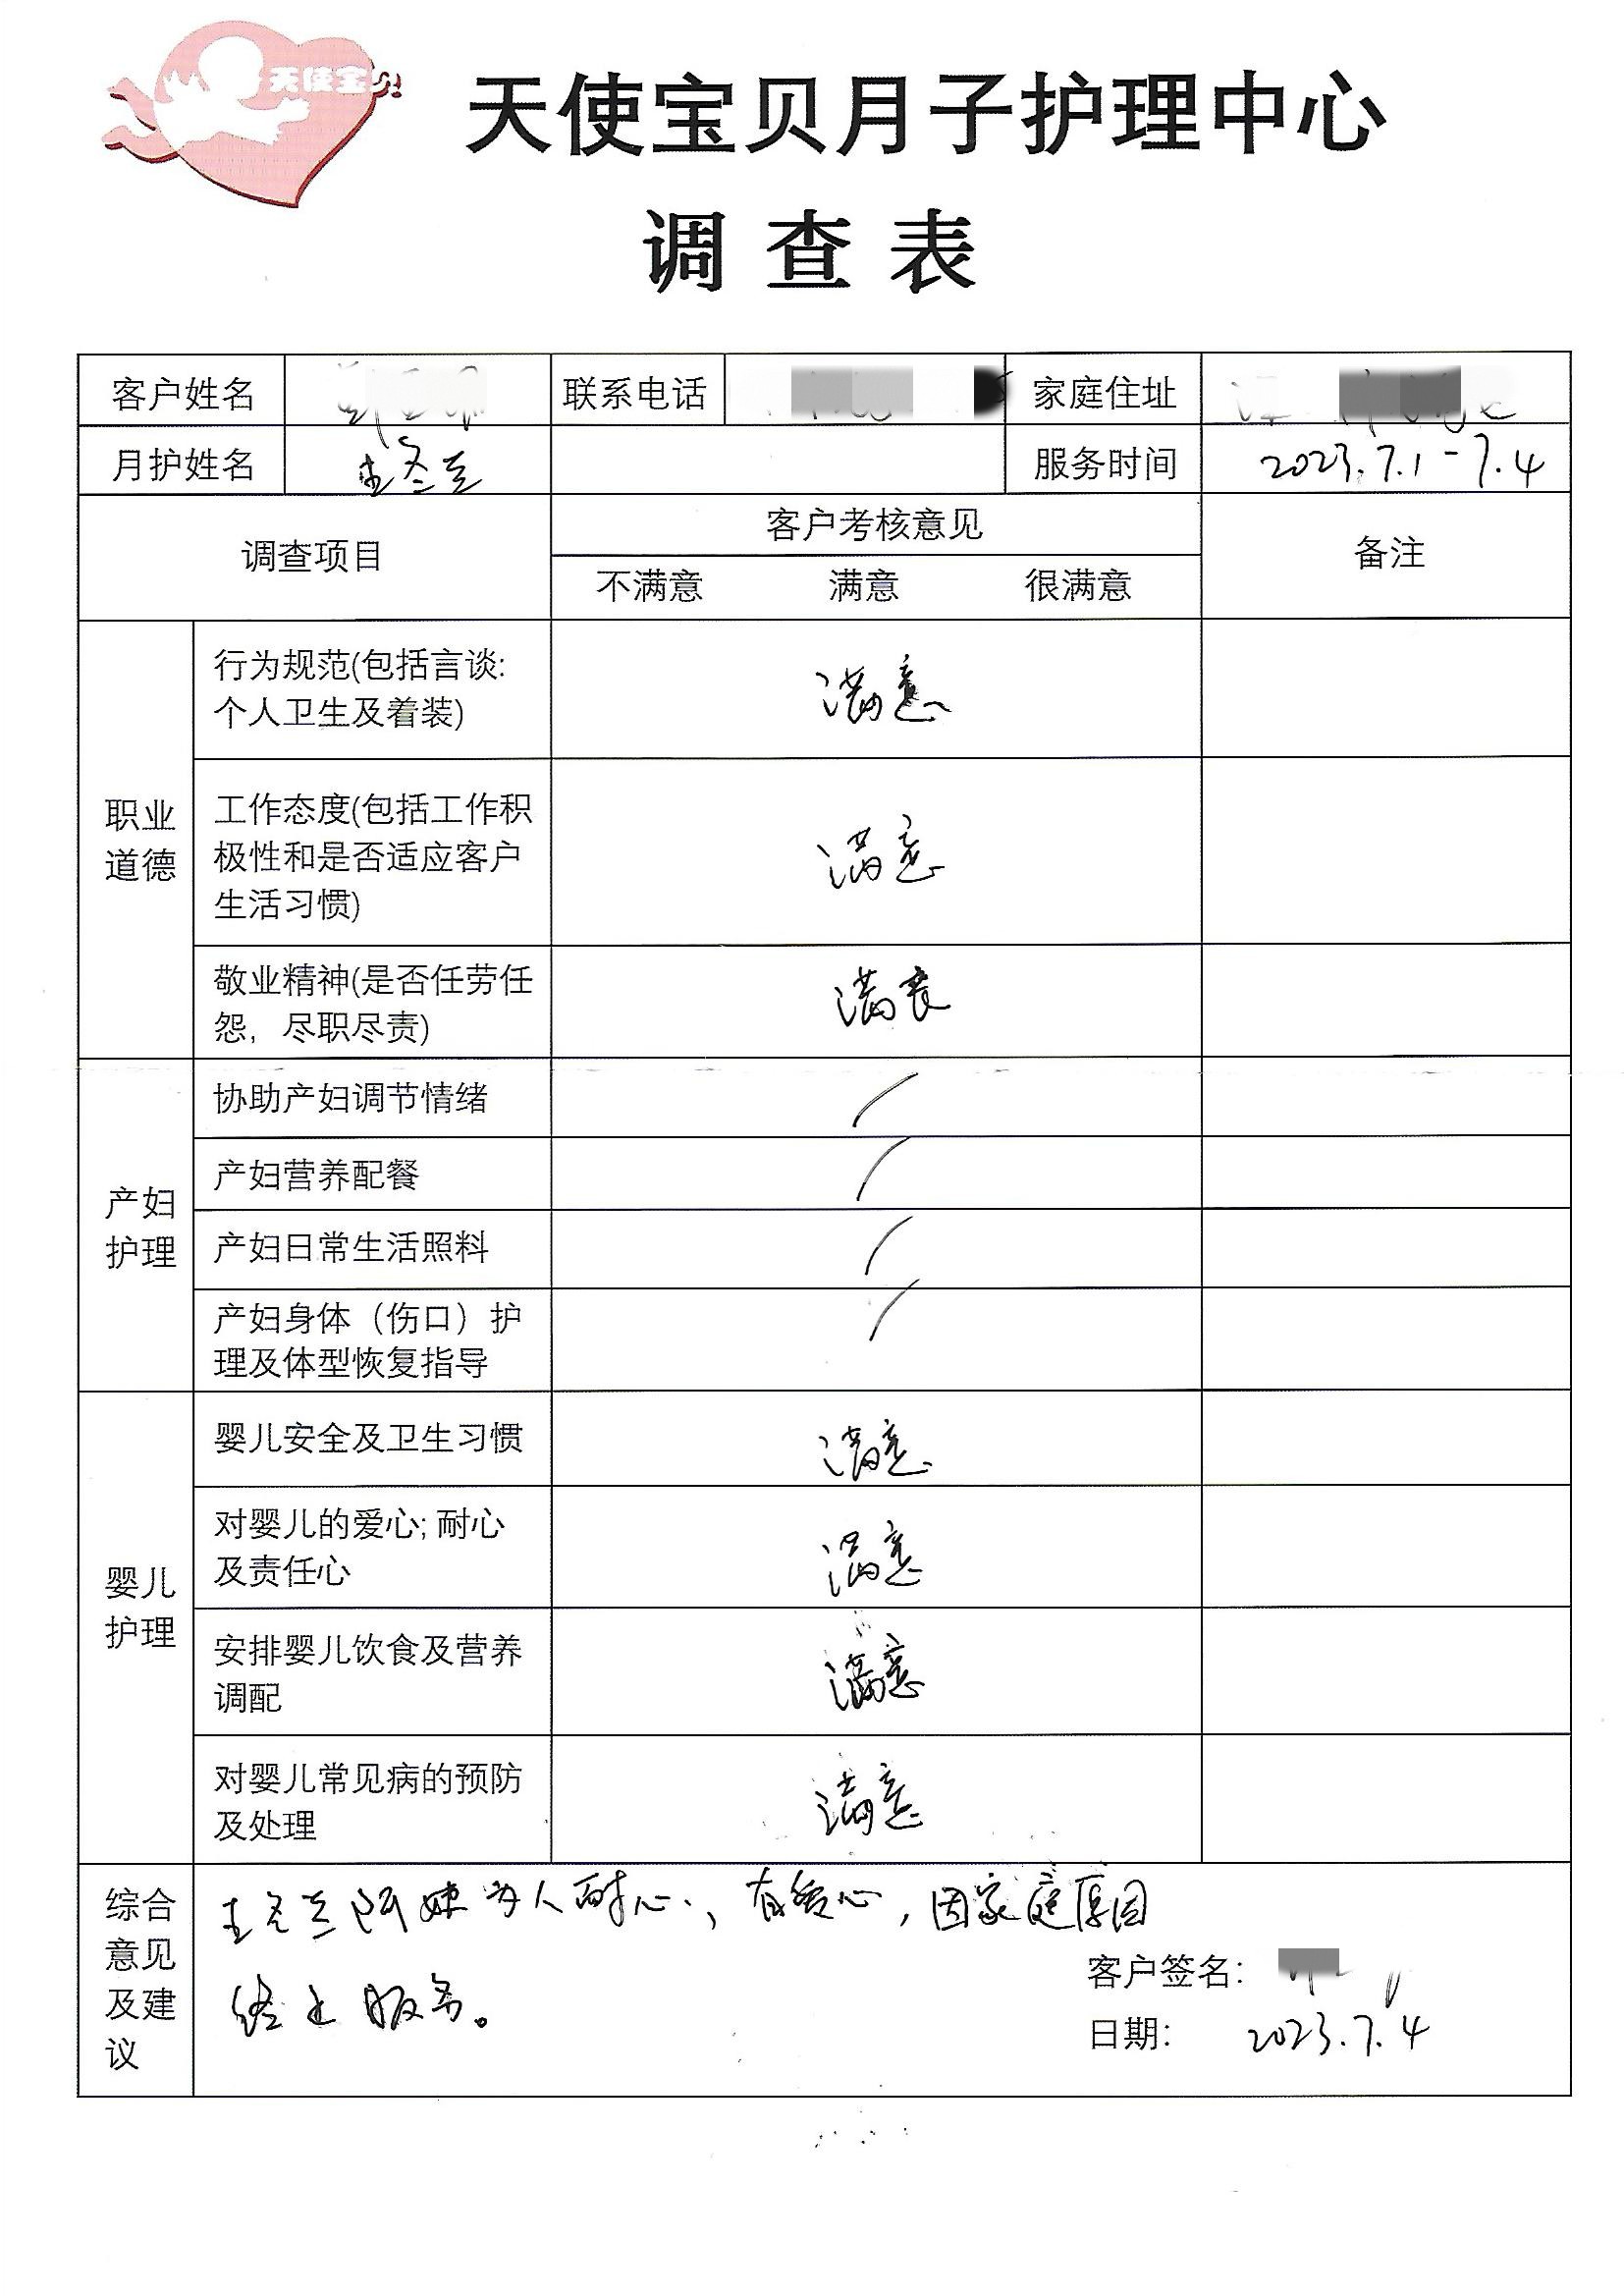 天使宝贝
天使宝贝月子护理中心
调查表
客户姓名 联系电话 家庭住址
月护姓名 服务时间 2023.7.1-7.4
调查项目 客户考核意见 备注
不满意 满意 很满意
职业
道德
行为规范(包括言谈:
个人卫生及着装)
满意
工作态度(包括工作积
极性和是否适应客户
生活习惯)
满意
敬业精神(是否任劳任
怨, 尽职尽责)
满意
产妇
护理
协助产妇调节情绪 /
产妇营养配餐 /
产妇日常生活照料 /
产妇身体（伤口）护
理及体型恢复指导
/
婴儿
护理
婴儿安全及卫生习惯 满意
对婴儿的爱心; 耐心
及责任心
满意
安排婴儿饮食及营养
调配
满意
对婴儿常见病的预防
及处理
满意
综合
意见
及建
议
阿姨为人耐心、有爱心, 因家庭原因
终止服务。
客户签名:
日期: 2023.7.4